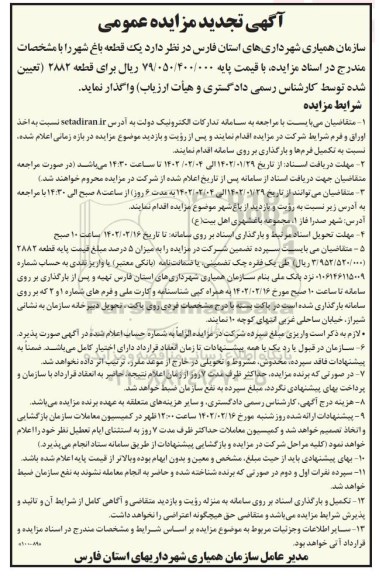 آگهی تجدید مزایده عمومی
سازمان همیاری شهرداری‌های استان فارس در نظر دارد یک قطعه باغ شهر را با مشخصات
مندرج در اسناد مزایده، با قیمت پایه ۷۹/۰۵۰/۴۰۰/۰۰۰ ریال برای قطعه ۲۸۸۲ (تعیین
شده توسط کارشناس رسمی دادگستری و هیأت ارزیاب) واگذار نماید.
شرایط مزایده
۱- متقاضیان می‌بایست با مراجعه به سامانه تدارکات الکترونیک دولت به آدرس setadiran.ir نسبت به اخذ
اوراق و فرم شرایط شرکت در مزایده اقدام نمایند و پس از رؤیت و بازدید موضوع مزایده در بازه زمانی اعلام شده،
نسبت به تکمیل فرم‌ها و بارگذاری بر روی سامانه اقدام نمایند.
۲- مهلت دریافت اسناد: از تاریخ ۱۴۰۲/۰۱/۲۹ الی ۱۴۰۲/۰۲/۰۴ تا ساعت ۱۴:۳۰ می‌باشد (در صورت مراجعه
متقاضیان جهت دریافت اسناد از سامانه پس از تاریخ اعلام شده از شرکت در مزایده محروم خواهند شد.)
۳- متقاضیان می‌توانند از تاریخ ۱۴۰۲/۰۱/۲۹ الی ۱۴۰۲/۰۲/۰۴ به مدت ۶ روز از ساعت ۸ صبح الی ۱۴:۳۰ با مراجعه
به آدرس زیر نسبت به رؤیت و بازدید از باغ شهر موضوع مزایده اقدام نمایند.
آدرس: شهر صدرا فاز ۱، مجموعه باغشهری اهل بیت(ع)
۴- مهلت تحویل اسناد مرتبط و بارگذاری اسناد بر روی سامانه: تا تاریخ ۱۴۰۲/۰۲/۱۶ ساعت ۱۰ صبح
۵- متقاضیان می‌بایست سپرده تضمین شرکت در مزایده را به میزان ۵ درصد مبلغ قیمت پایه قطعه ۲۸۸۲
(۳/۹۵۲/۵۲۰/۰۰۰ ریال) طی یک فقره چک تضمینی، یا ضمانت‌نامه (بانکی معتبر) یا واریز نقدی به حساب شماره
نزد بانک ملی بنام سازمان همیاری شهرداری‌های استان فارس تهیه و پس از بارگذاری بر روی
سامانه تا ساعت ۱۰ صبح مورخ ۱۴۰۲/۰۲/۱۶ به همراه کپی شناسنامه و کارت ملی و فرم های شماره ۱ و ۲ که بر روی
سامانه بارگذاری شده است در پاکت بسته با درج مشخصات فردی روی پاکت، تحویل دبیرخانه سازمان به نشانی
شیراز، خیابان ساحلی غربی انتهای کوچه ۱۰ نمایند.
• لازم به ذکر است واریزی مبلغ سپرده شرکت در مزایده الزاماً به شماره حساب اعلام شده در آگهی صورت پذیرد.
۶- سازمان در قبول یا رد یک یا همه پیشنهادات تا زمان انعقاد قرارداد دارای اختیار کامل می‌باشد. ضمناً به
پیشنهادات فاقد سپرده، مخدوش، مشروط و تحویلی در خارج از موعد مقرر، ترتیب اثر داده نخواهد شد.
۷- در صورتی که برنده مزایده، حداکثر ظرف مدت ۷ روز از زمان اعلام نتیجه، حاضر به انعقاد قرارداد با سازمان و
پرداخت بهای پیشنهادی نگردد، مبلغ سپرده به نفع سازمان ضبط خواهد شد.
۸- هزینه درج آگهی، کارشناس رسمی دادگستری، و سایر هزینه‌های متعلقه به عهده برنده مزایده می‌باشد.
۹- پیشنهادات ارائه شده روز شنبه مورخ ۱۴۰۲/۰۲/۱۶ ساعت ۱۲:۰۰ ظهر در کمیسیون معاملات سازمان بازگشایی
و اتخاذ تصمیم خواهد شد و کمیسیون معاملات حداکثر ظرف مدت ۷ روز به استثنای ایام تعطیل نظر خود را اعلام
خواهد نمود (کلیه مراحل شرکت در مزایده و بازگشایی پیشنهادات از طریق سامانه ستاد انجام می‌پذیرد.)
۱۰- بهای پیشنهادی باید از حیث مبلغ، مشخص و معین و بدون ابهام بوده و بالاتر از قیمت پایه اعلام شده باشد.
۱۱- سپرده نفرات اول و دوم در صورتی که برنده شناخته شده و حاضر به انجام معامله نشوند به نفع سازمان ضبط
خواهد شد.
۱۲- تکمیل و بارگذاری اسناد بر روی سامانه به منزله رؤیت و بازدید متقاضی و آگاهی کامل از شرایط آن و تائید و
پذیرش شرایط مزایده می‌باشد و متقاضی حق هیچگونه اعتراضی را نخواهد داشت.
۱۳- سایر اطلاعات و جزئیات مربوط به موضوع مزایده بر اساس شرایط و مشخصات مندرج در اسناد مزایده و
قرارداد آتی خواهد بود.
مدیر عامل سازمان همیاری شهرداریهای استان فارس